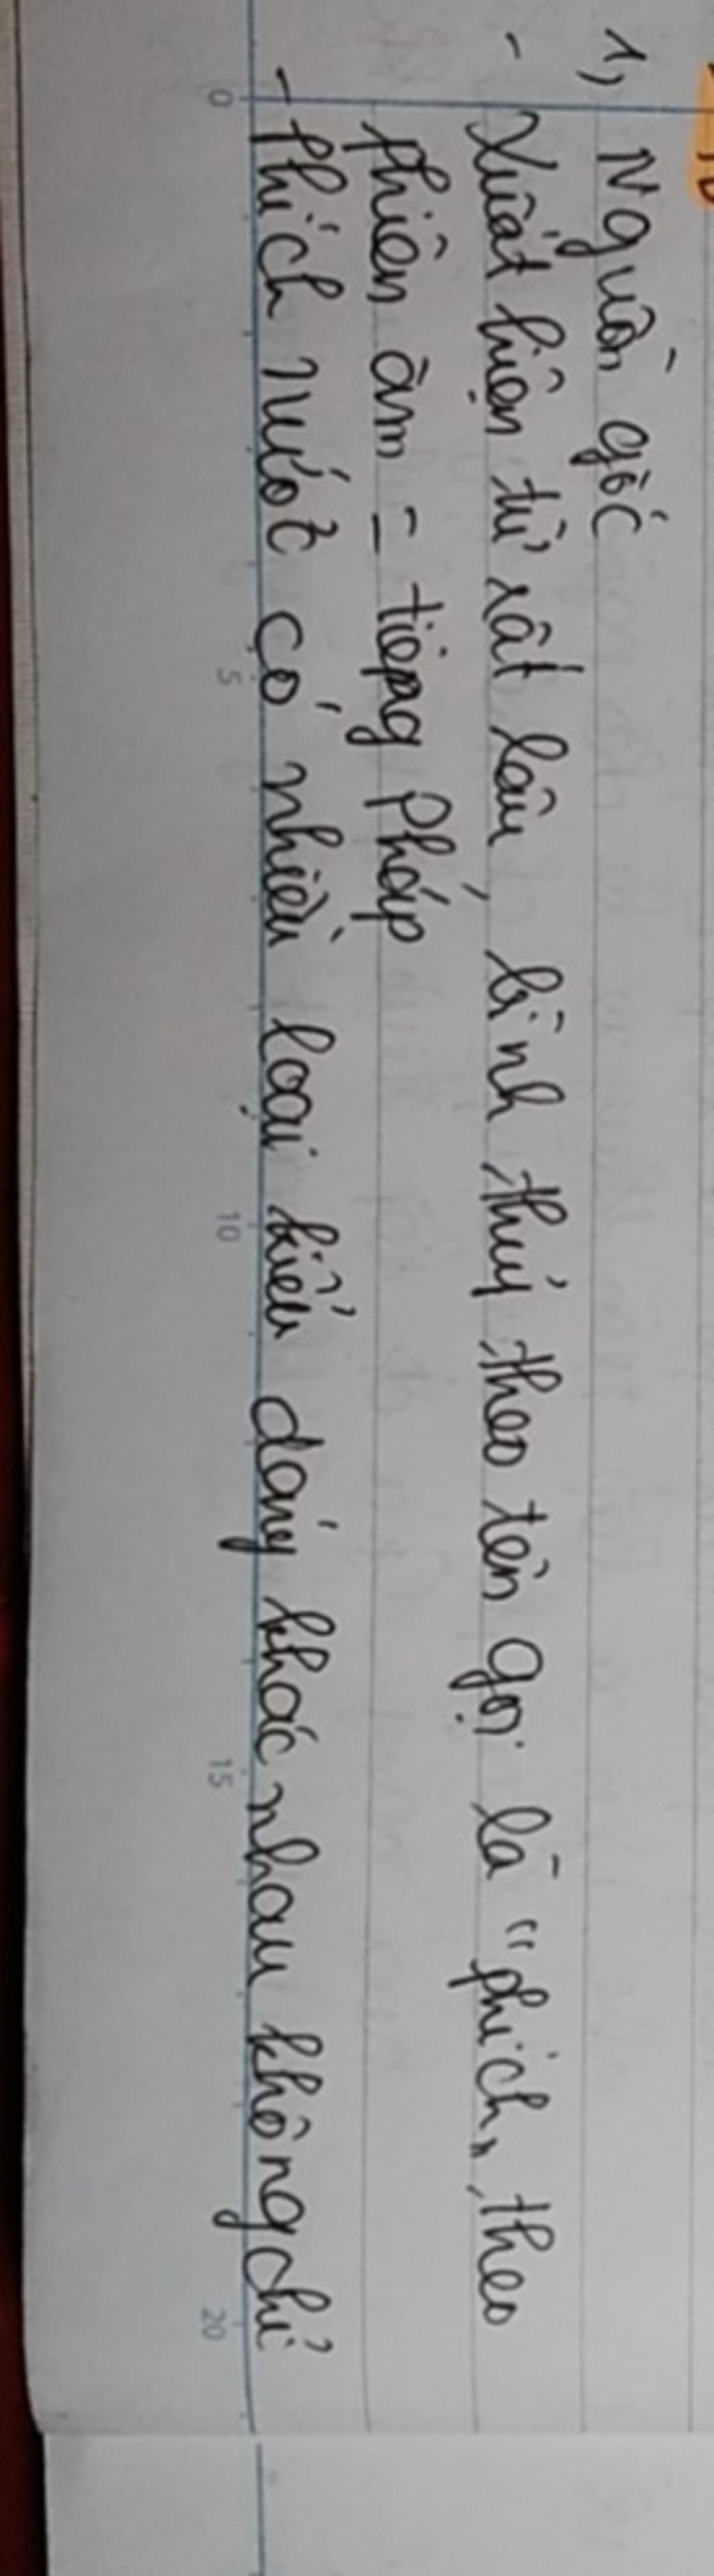 1, Nguồn gốc
- Xuất hiện từ rất lâu, bình thuỷ theo tên gọi là "phích", theo
phiên âm = tiếng Pháp
- Phích nước có nhiều loại kiểu dáng khác nhau không chỉ
0 5 10 15 20